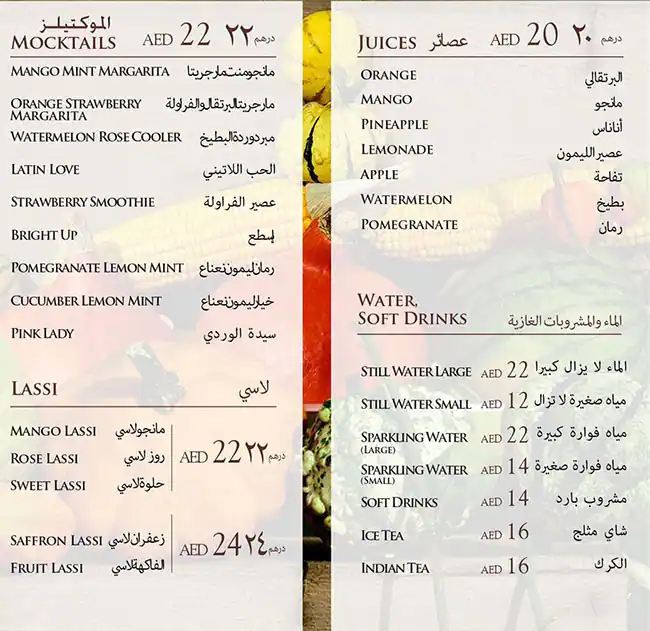 الموكتيلز
MOCKTAILS AED 22 ٢٢ درهم
MANGO MINT MARGARITA مانجومنت مارجريتا
ORANGE STRAWBERRY مارجريتا البرتقال والفراولة
MARGARITA
WATERMELON ROSE COOLER مبرد وردة البطيخ
LATIN LOVE الحب اللاتيني
STRAWBERRY SMOOTHIE عصير الفراولة
BRIGHT UP إسطع
POMEGRANATE LEMON MINT رمان ليمون نعناع
CUCUMBER LEMON MINT خيار ليمون نعناع
PINK LADY سيدة الوردي
LASSI لاسي
MANGO LASSI مانجولاسي
ROSE LASSI روز لاسي AED 22 ٢٢ درهم
SWEET LASSI حلوة لاسي
SAFFRON LASSI زعفران لاسي AED 24 ٢٤ درهم
FRUIT LASSI الفاكهة لاسي
JUICES عصائر AED 20 ٢٠ درهم
ORANGE البرتقالي
MANGO مانجو
PINEAPPLE أناناس
LEMONADE عصير الليمون
APPLE تفاحة
WATERMELON بطيخ
POMEGRANATE رمان
WATER,
SOFT DRINKS الماء والمشروبات الغازية
STILL WATER LARGE AED 22 الماء لا يزال كبيرا
STILL WATER SMALL AED 12 مياه صغيرة لا تزال
SPARKLING WATER AED 22 مياه فوارة كبيرة
(LARGE)
SPARKLING WATER AED 14 مياه فوارة صغيرة
(SMALL)
SOFT DRINKS AED 14 مشروب بارد
ICE TEA AED 16 شاي مثلج
INDIAN TEA AED 16 الكرك